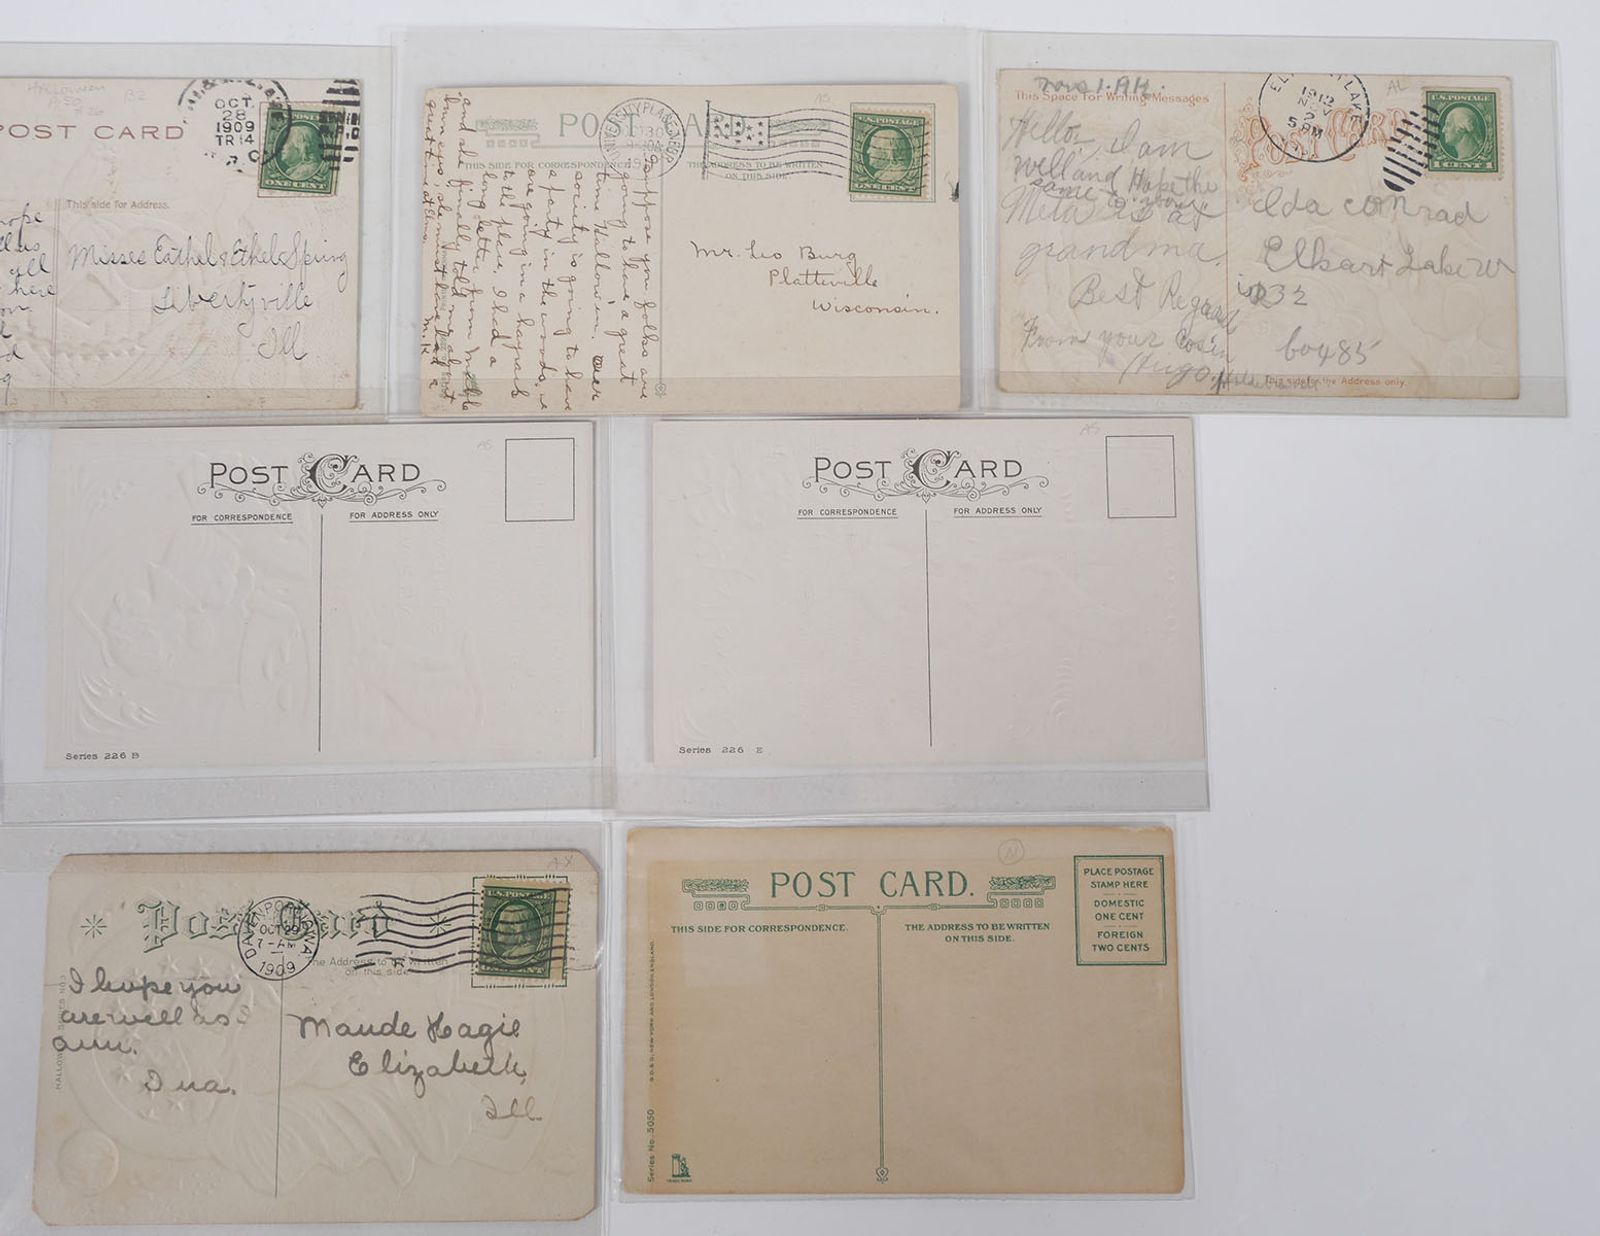 HALLOWEEN
B2
POST CARD
OCT.
28
1909
TR 14
U.S. POSTAGE
ONE CENT
This side for Address.
Misses Eathel & Ethel Spring
Libertyville
Ill
hope
all
here
A5
POST CARD
THIS SIDE FOR CORRESPONDENCE
THE ADDRESS TO BE WRITTEN
ON THIS SIDE
U.S. POSTAGE
ONE CENT
I suppose you folks are
going to have a great
time Hallowe'en. Our
society is going to have
a party in the woods, we
are going in a hayrack
to the place. I had a
long letter from Mable
and she finally told me about
brown eyes, she must have had a
great time at Elmo. M.K.
Mr. Leo Burg
Platteville
Wisconsin.
Nov 1.
This Space for Writing Messages
AL
POST CARD
1912
NOV
2
5 PM
LAKE
U.S. POSTAGE
1 CENT
Hello, I am
well and Hope the
same to you
Meta is at
grandma.
Best Regards
From your Cosin
Hugo
Ida Conrad
Elkart Lake W
is
R 32
box 85
This side for the Address only
POST CARD
A5
FOR CORRESPONDENCE
FOR ADDRESS ONLY
Series 226 B
POST CARD
A5
FOR CORRESPONDENCE
FOR ADDRESS ONLY
Series 226 E
AX
Post Card
DAVENPORT, IOWA
OCT 29
7-AM
1909
U.S. POSTAGE
ONE CENT
The Address to be written
on this side
I hope you
are well as I
am.
Ina.
Maude Hagie
Elizabeth,
Ill.
N
POST CARD.
THIS SIDE FOR CORRESPONDENCE.
THE ADDRESS TO BE WRITTEN
ON THIS SIDE.
PLACE POSTAGE
STAMP HERE
DOMESTIC
ONE CENT
FOREIGN
TWO CENTS
Series No. 5050